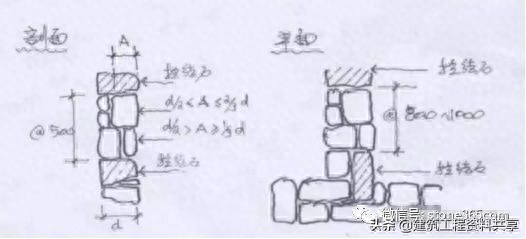 剖面
A
拉结石
d/2 < A ≤ 2/3 d
@500
d/2 > A ≥ 1/3 d
拉结石
d
平面
拉结石
@ 800~1000
拉结石
微信号: stone365com
头条 @建筑工程资料共享